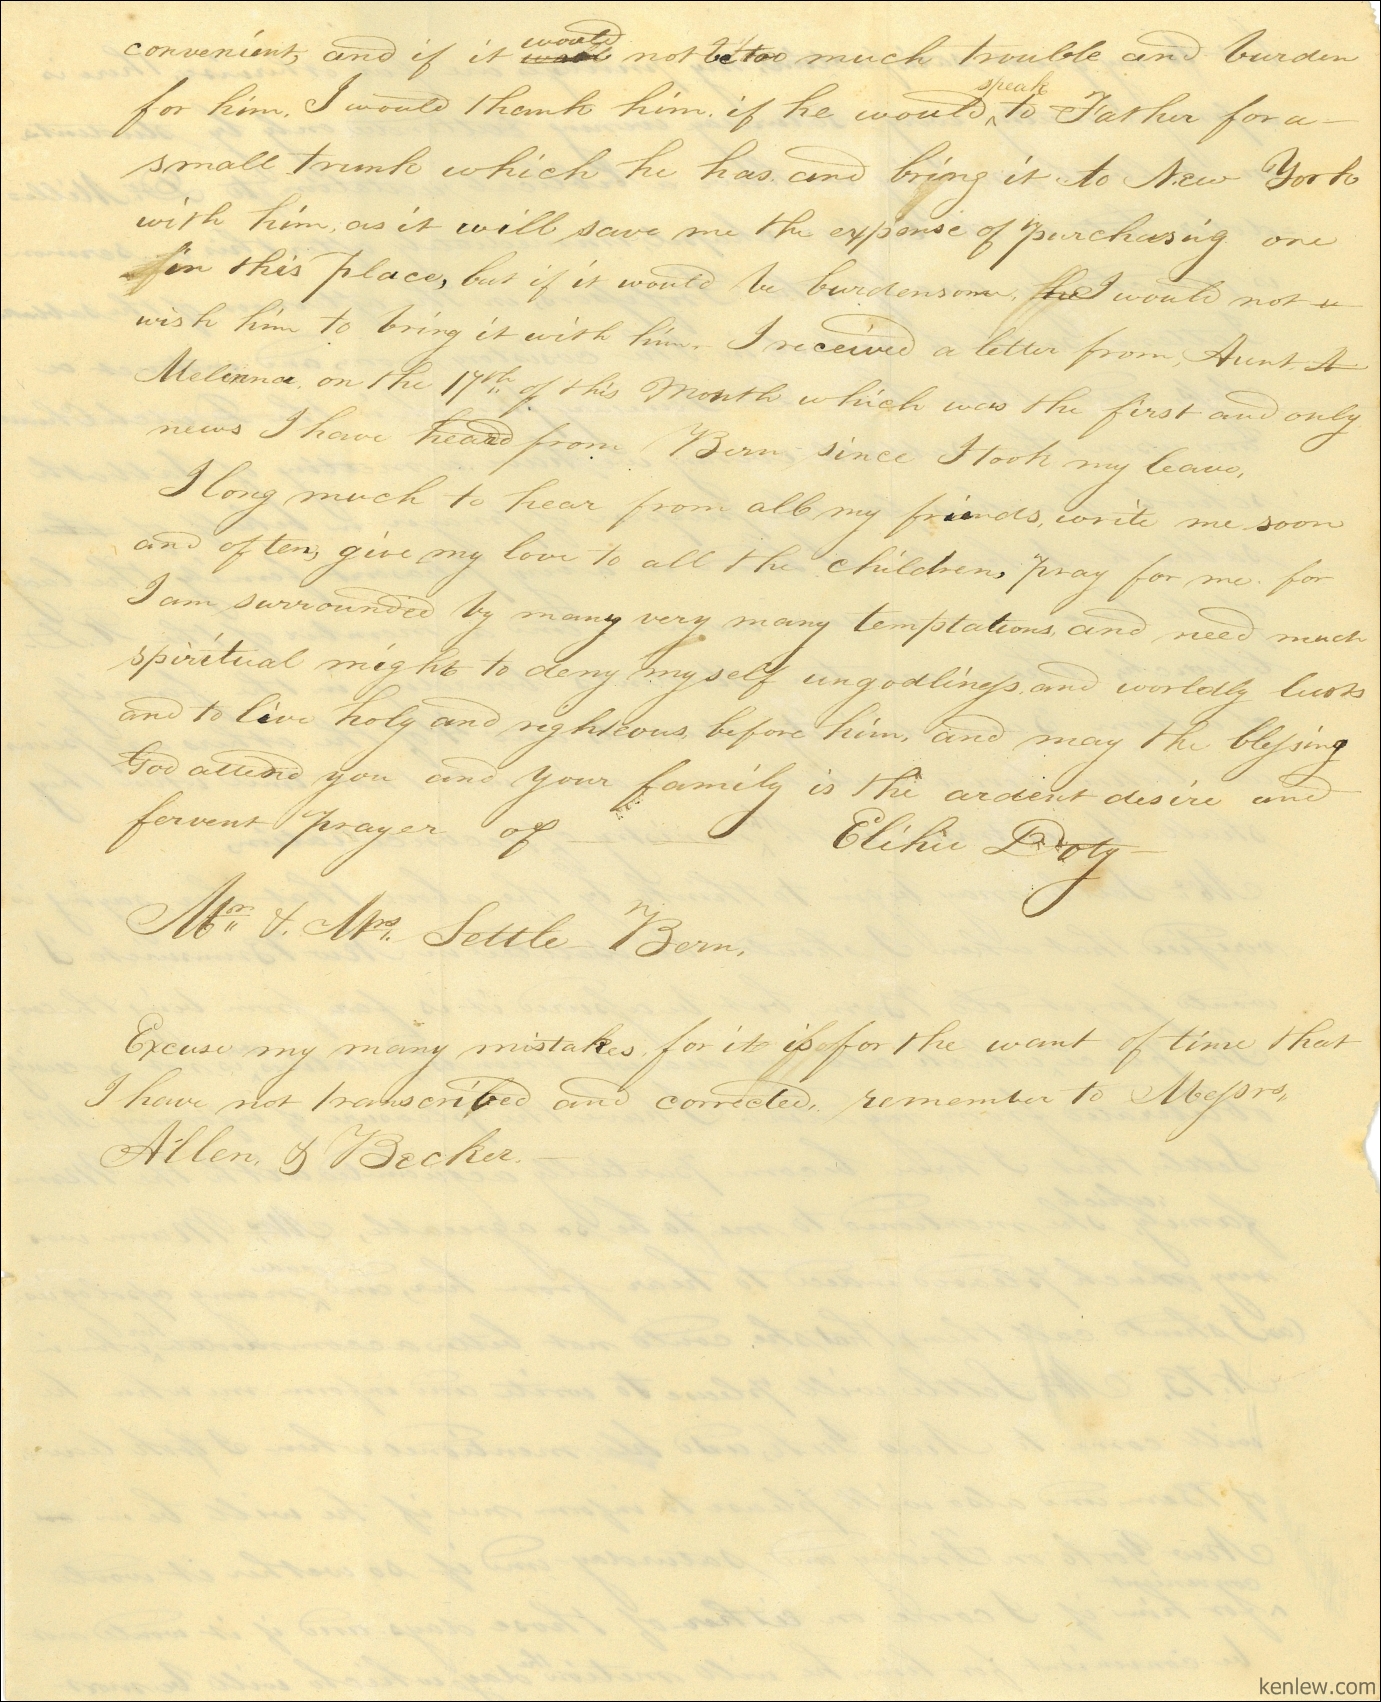 convenient, and if it would not be too much trouble and burden
for him. I would thank him. if he would speak to Father for a
small trunk which he has and bring it to New York
with him, as it will save me the expense of purchasing one
in this place, but if it would be burdensome, he I would not
wish him to bring it with him. I received a letter from Aunt A
Melinna, on the 17th of this Month which was the first and only
news I have heard from Bern since I took my leave,
I long much to hear from all my friends, write me soon
and often, give my love to all the children, pray for me. for
I am surrounded by many very many temptations, and need much
spiritual might to deny myself ungodliness, and worldly lusts
and to live holy and righteous, before him, and may the blessing
God attend you and your family is the ardent desire and
fervent prayer of Elihu Doty
Mr & Mrs Settle Bern,
Excuse my many mistakes, for it is for the want of time that
I have not transcribed and corrected, remember to Messrs,
Allen, & Becker.
kenlew.com